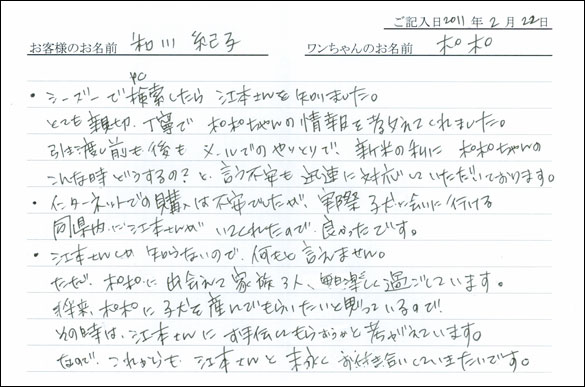 ご記入日2011年2月22日
お客様のお名前 和川 紀子 ワンちゃんのお名前 ポポ
PC
・シーズーで検索したら江本さんを知りました。
とても親切、丁寧で ポポちゃんの情報を教えてくれました。
引き渡し前も後も メールでのやりとりで、新米の私に ポポちゃんの
こんな時どうするの?と、言う不安も 迅速に対応していただいております。
・インターネットでの購入は不安でしたが、実際 子犬に会いに行ける
同県内に江本さんが いてくれたので、良かったです。
・江本さんしか 知らないので、何とも言えません。
ただ、ポポに 出会えて 家族3人、毎日楽しく過ごしています。
将来、ポポに 子犬を産んでもらいたいと思っているので、
その時は、江本さんに お手伝いしてもらおうかと 考えています。
なので、これからも 江本さんと 末永く お付き合いしていきたいです。